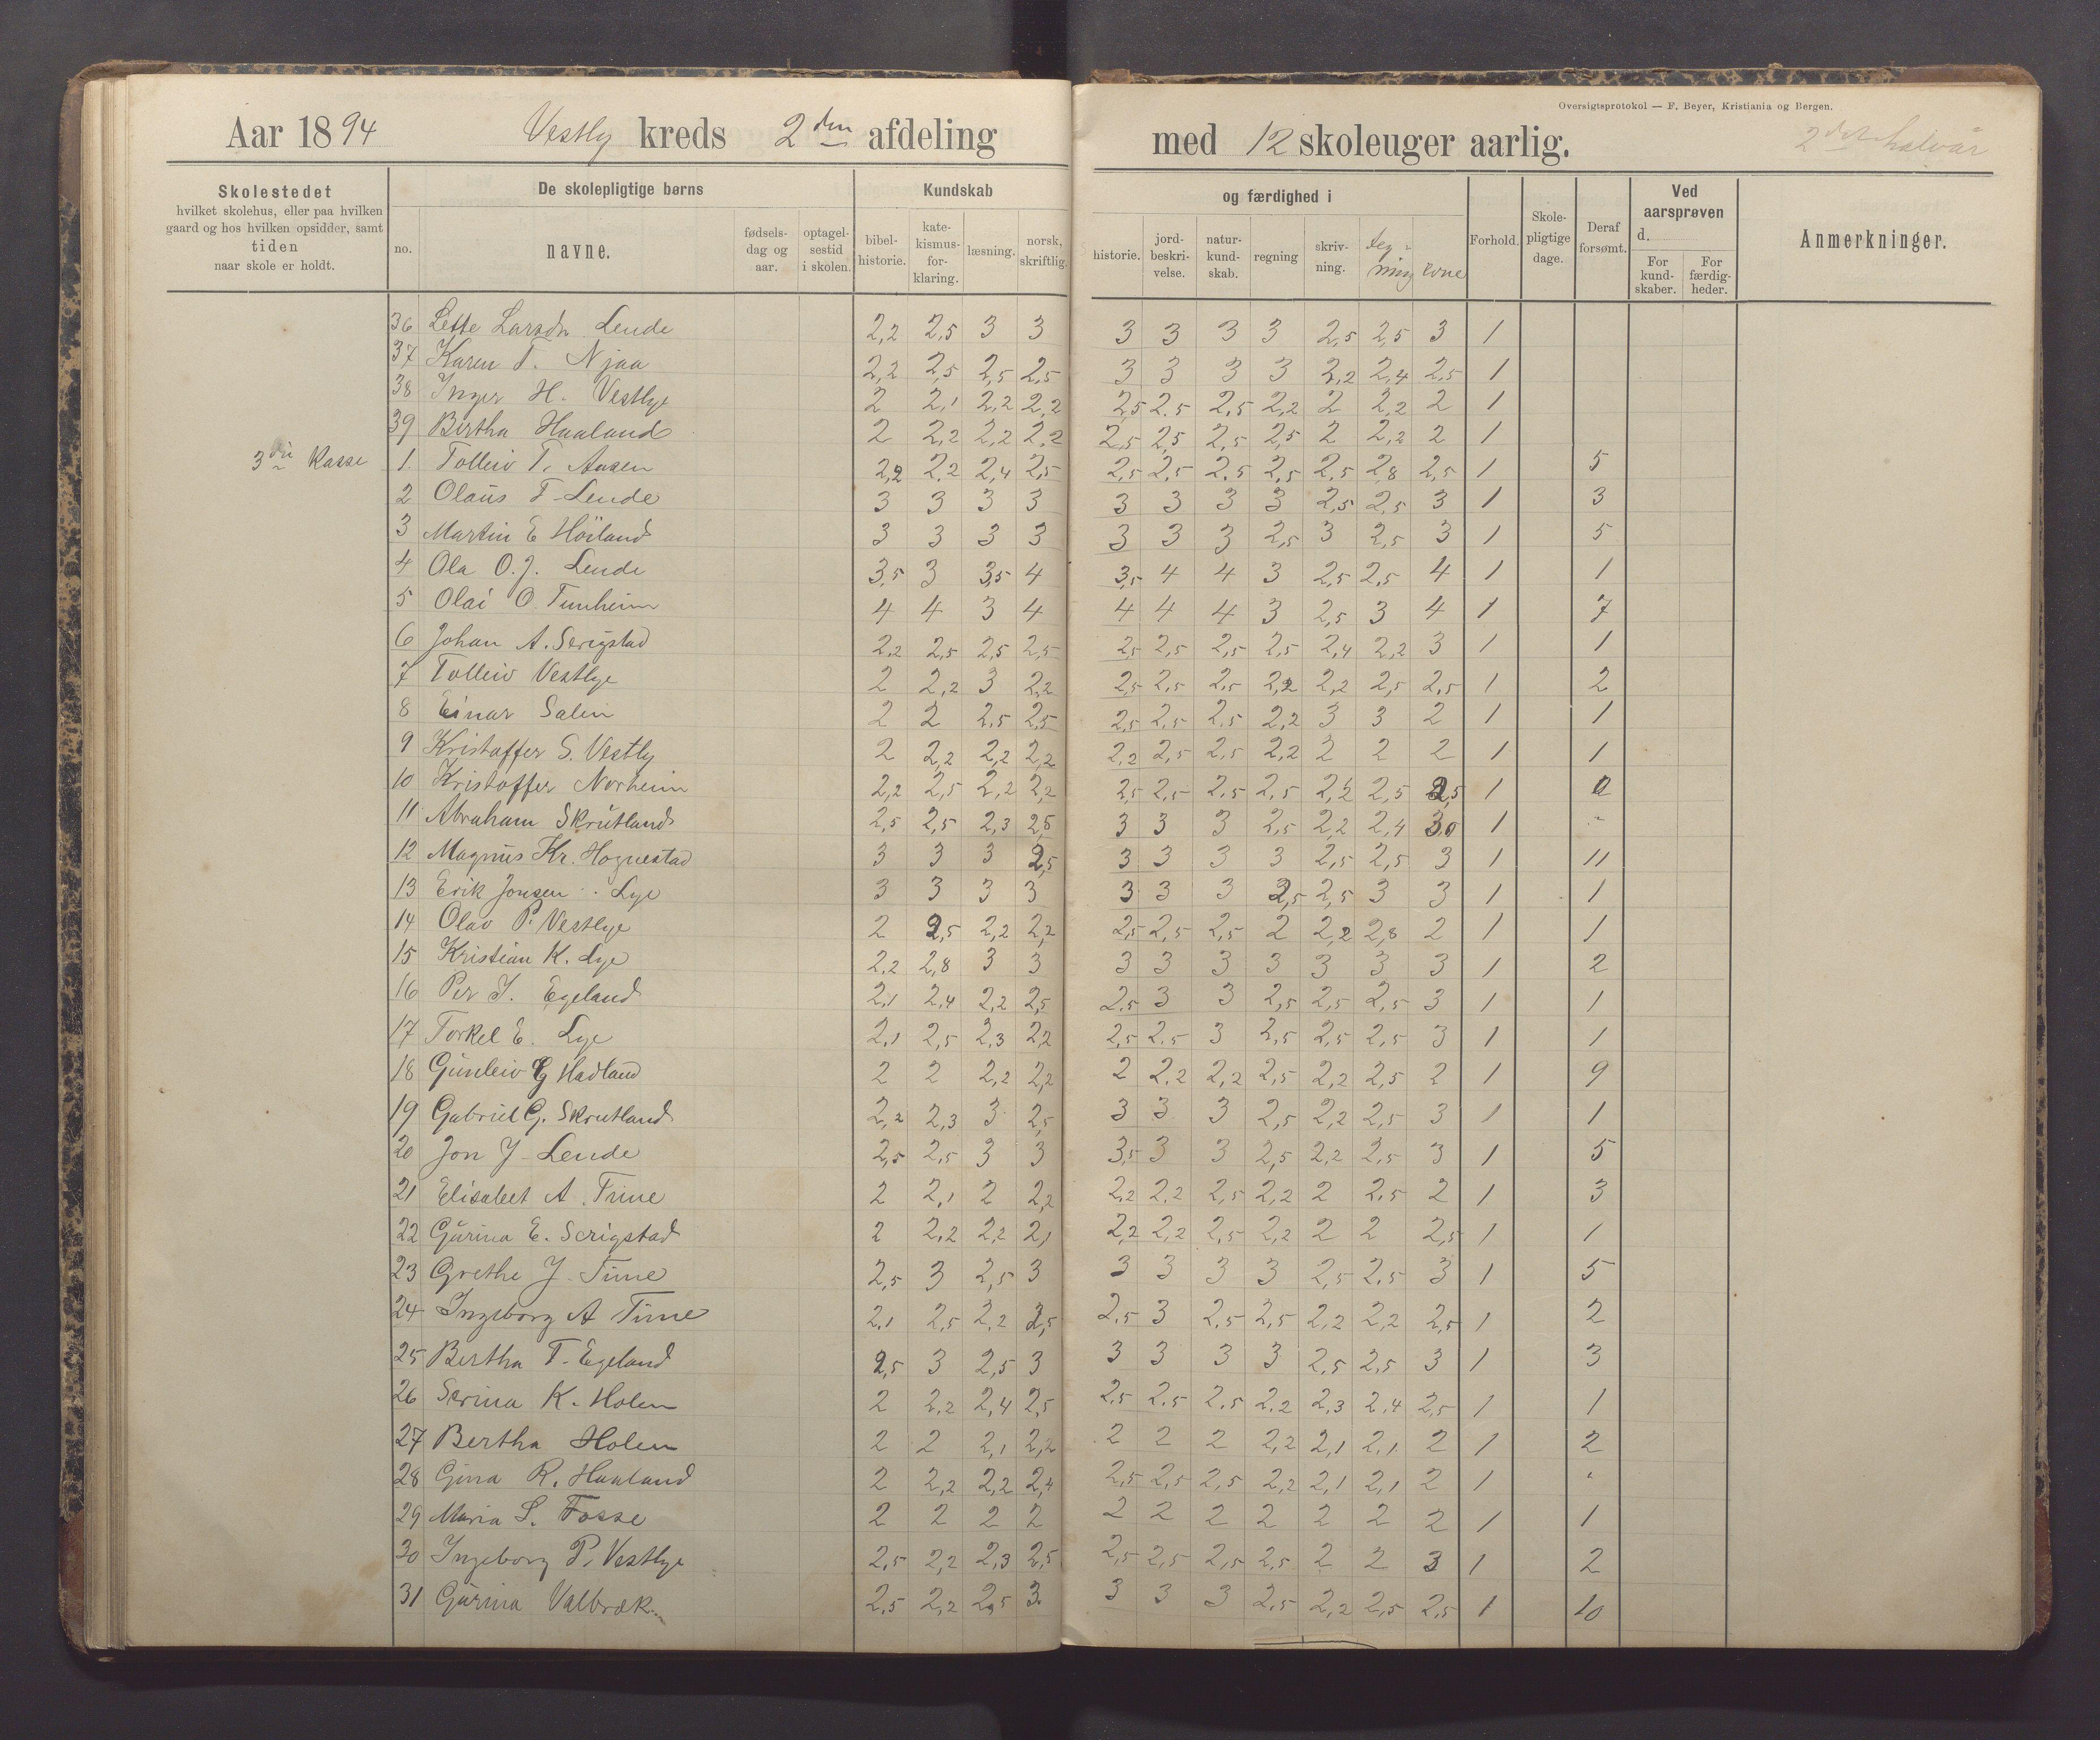 Oversigtsprotokol — F. Beyer, Kristiania og Bergen.
Aar 1894 Vestly kreds 2den afdeling med 12 skoleuger aarlig. 2det halvår
Skolestedet
hvilket skolehus, eller paa hvilken
gaard og hos hvilken opsidder, samt
tiden
naar skole er holdt.
De skolepligtige børns
no. navne. fødsels-dag og aar. optagel-sestid i skolen.
Kundskab og færdighed i
bibel-historie. kate-kismus-for-klaring. læsning. norsk, skriftlig. historie. jord-beskri-velse. natur-kund-skab. regning skriv-ning. teg-ning evne
Forhold. Skole-pligtige dage. Deraf forsømt. Ved aarsprøven d. For kund-skaber. For færdig-heder. Anmerkninger.
36 Lette Larsdn Lende 2,2 2,5 3 3 3 3 3 3 2,5 2,5 3 1
37 Karen T. Njaa 2,2 2,5 2,5 2,5 3 3 3 3 2,2 2,4 2,5 1
38 Inger H. Vestlye 2 2,1 2,2 2,2 2,5 2,5 2,5 2,2 2 2,2 2 1
39 Bertha Haaland 2 2,2 2,2 2,2 2,5 2,5 2,5 2,5 2 2,2 2 1
3die Kasse 1. Tolleiv T. Aasen 2,2 2,2 2,4 2,5 2,5 2,5 2,5 2,5 2,5 2,8 2,5 1 5
2 Olaus T. Lende 3 3 3 3 3 3 3 3 2,5 2,5 3 1 3
3 Martin E Höiland 3 3 3 3 3 3 3 2,5 3 2,5 3 1 5
4 Ola O.J. Lende 3,5 3 3,5 4 3,5 4 4 3 2,5 2,5 4 1 1
5 Olai O. Tunheim 4 4 3 4 4 4 4 3 2,5 3 4 1 7
6 Johan A. Serigstad 2,2 2,5 2,5 2,5 2,5 2,5 2,5 2,5 2,4 2,2 3 1 1
7 Tolleiv Vestlye 2 2,2 3 2,2 2,5 2,5 2,5 2,2 2,2 2,5 2,5 1 2
8 Einar Salin 2 2 2,5 2,5 2,5 2,5 2,5 2,2 3 3 2 1 1
9 Kristoffer S. Vestly 2 2,2 2,2 2,2 2,2 2,5 2,5 2,2 2 2 2 1 1
10 Kristoffer Norheim 2,2 2,5 2,2 2,2 2,5 2,5 2,5 2,5 2,2 2,5 2,5 1 0
11 Abraham Skrutland 2,5 2,5 2,3 2,5 3 3 3 2,5 2,2 2,4 3,0 1 -
12 Magnus Kr. Hognestad 3 3 3 2,5 3 3 3 3 2,5 2,5 3 1 11
13 Erik Jonsen Lye 3 3 3 3 3 3 3 2,5 2,5 3 3 1 1
14 Olav P. Vestlye 2 2,5 2,2 2,2 2,5 2,5 2,5 2 2,2 2,8 2 1 1
15 Kristian K. Lye 2,2 2,8 3 3 3 3 3 3 3 3 3 1 2
16 Per J. Egeland 2,1 2,4 2,2 2,5 2,5 3 3 2,5 2,5 2,5 3 1 1
17 Torkel E. Lye 2,1 2,5 2,3 2,2 2,5 2,5 3 2,5 2,5 2,5 3 1 1
18 Gunleiv G Hadland 2 2 2,2 2,2 2 2,2 2,2 2,5 2,2 2,5 2 1 9
19 Gabriel G. Skrutland 2,2 2,3 3 2,5 3 3 3 2,5 2,2 2,5 3 1 1
20 Jon J. Lende 2,5 2,5 3 3 3,5 3 3 2,5 2,2 2,5 3 1 5
21 Elisabet A. Time 2 2,1 2 2,2 2,2 2,2 2,5 2,2 2 2,5 2 1 3
22 Gurina E. Serigstad 2 2,2 2,2 2,1 2,2 2,2 2,5 2,2 2 2 2,5 1 1
23 Grethe J. Time 2,5 3 2,5 3 3 3 3 3 2,5 2,5 3 1 5
24 Ingeborg A Time 2,1 2,5 2,2 2,5 2,5 3 2,5 2,5 2,2 2,2 2,5 1 2
25 Bertha T. Egeland 2,5 3 2,5 3 3 3 3 3 2,5 2,5 3 1 3
26 Serina K. Holen 2 2,2 2,4 2,5 2,5 2,5 2,5 2,2 2,3 2,4 2,5 1 1
27 Bertha Holen 2 2 2,1 2,2 2 2 2 2,2 2,1 2,1 2 1 2
28 Gina R. Haaland 2 2,2 2,2 2,4 2,5 2,5 2,5 2,2 2,1 2,1 2 1
29 Maria S. Fosse 2 2 2 2 2 2 2 2 2 2 2 1 1
30 Ingeborg P. Vestlye 2,5 2,2 2,3 2,5 2,5 2,5 2,5 2,5 2 2 3 1 2
31 Gurina Valbræk 2,5 2,2 2,5 3 3 3 3 2,5 2,2 2,5 2,5 1 10